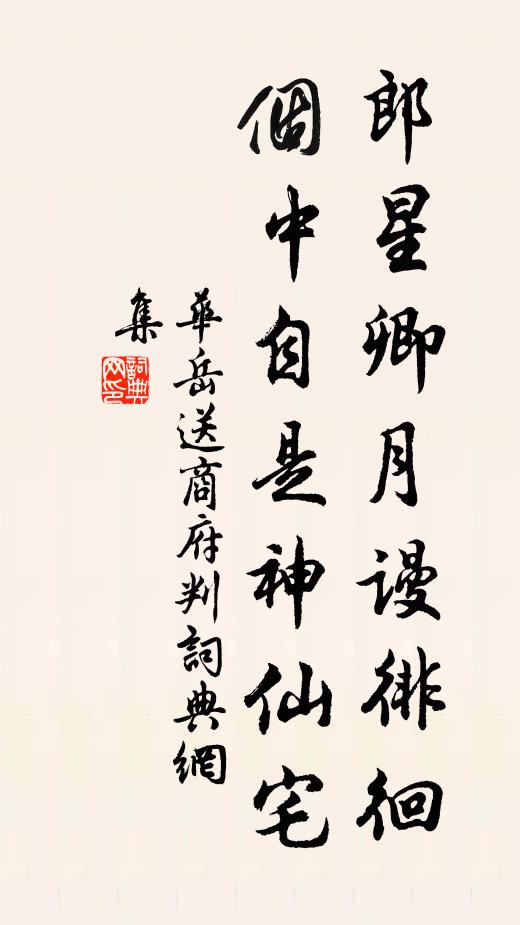 郎星卿月謾徘徊
個中自是神仙宅
華岳送商府判詞典網
集
詞典
网印